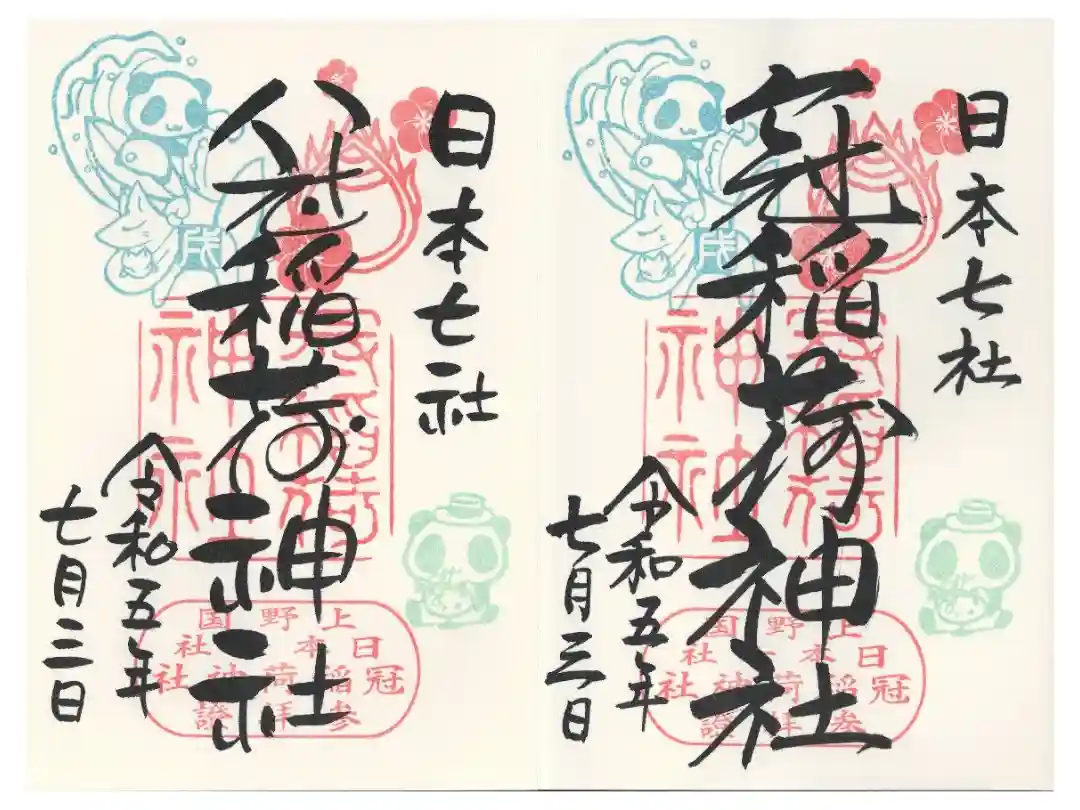 日本七社
冠稲荷神社
令和五年
七月三日
上野国
日本七社
冠稲荷神社
参拝證
日本七社
冠稲荷神社
令和五年
七月三日
上野国
日本七社
冠稲荷神社
参拝證